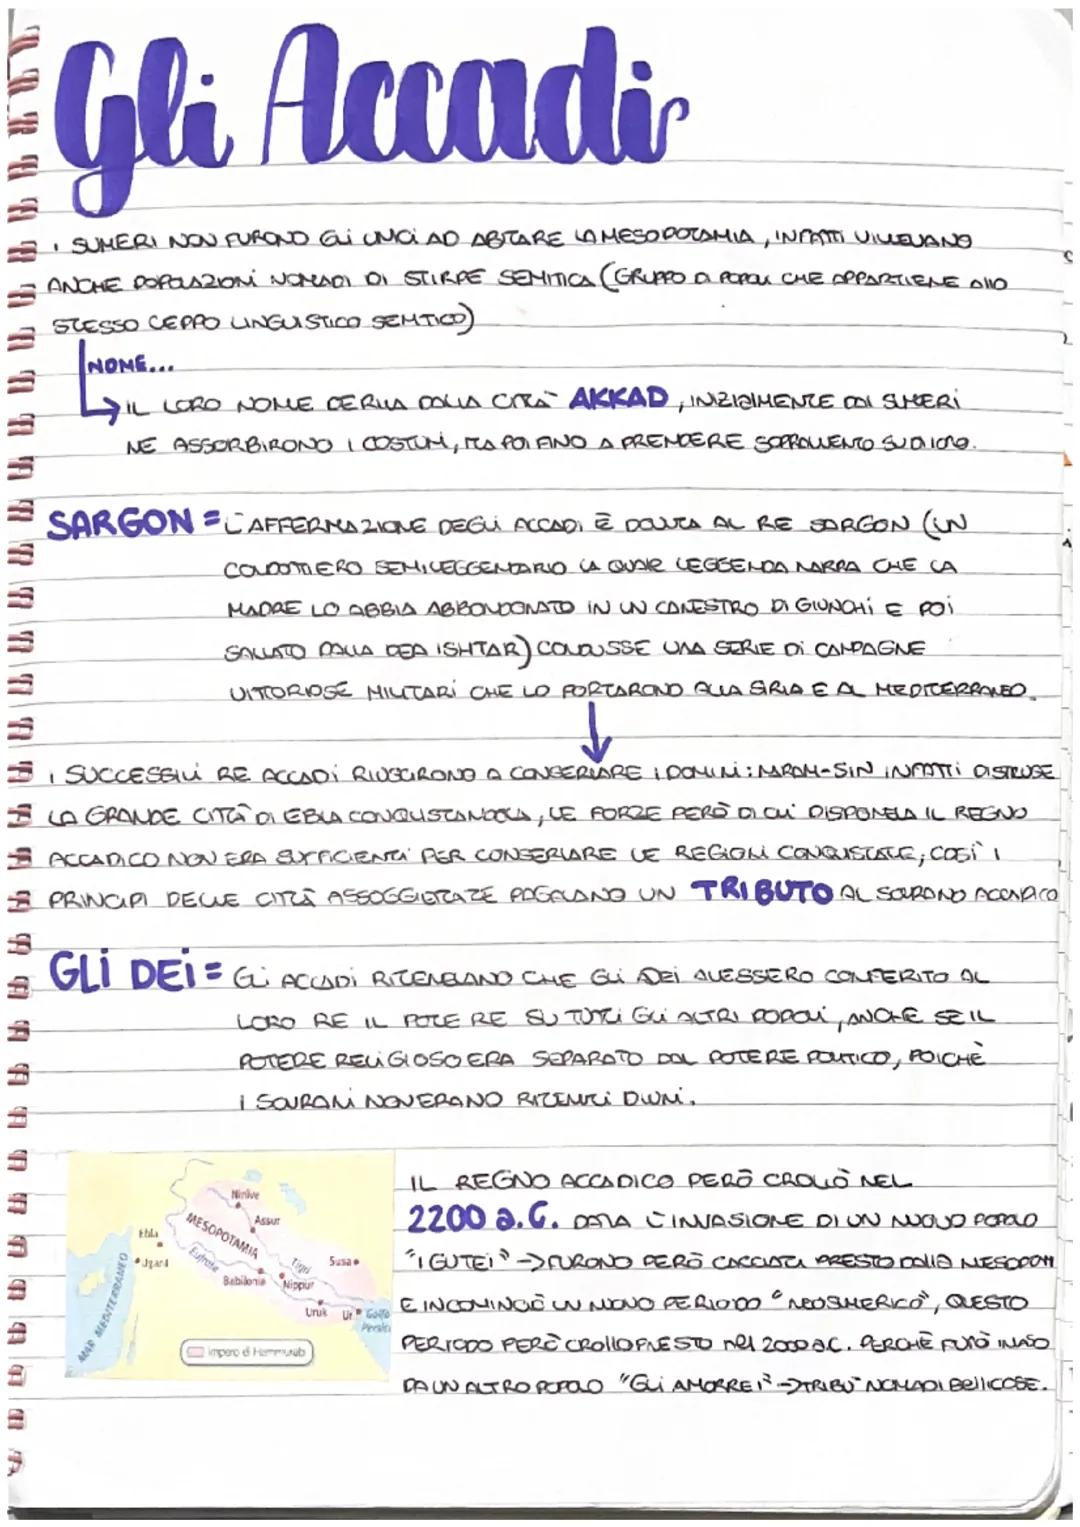 Gli Accadi
I SUMERI NON FURONO GLI UNICI AD ABITARE LA MESOPOTAMIA, INFATTI VIVEVANO
ANCHE POPOLAZIONI NOMADI DI STIRPE SEMITICA (GRUPPO DI POPOLI CHE APPARTIENE ALLO
STESSO CEPPO LINGUISTICO SEMITICO)
NOME...
IL LORO NOME DERIVA DALLA CITTÀ AKKAD, INIZIALMENTE DAI SUMERI
NE ASSORBIRONO I COSTUMI, MA POI FINO A PRENDERE SOPRAVVENTO SU DI LORO.
SARGON = L'AFFERMAZIONE DEGLI ACCADI È DOVUTA AL RE SARGON (UN
CONDOTTIERO SEMILEGGENDARIO LA QUALE LEGGENDA NARRA CHE LA
MADRE LO ABBIA ABBONDONATO IN UN CANESTRO DI GIUNCHI E POI
SALVATO DALLA DEA ISHTAR) CONDUSSE UNA SERIE DI CAMPAGNE
VITTORIOSE MILITARI CHE LO PORTARONO ALLA SIRIA E AL MEDITERRANEO.
I SUCCESSIVI RE ACCADI RIUSCIRONO A CONSERVARE I DOMINI: NARAM-SIN INFATTI DISTRUSSE
LA GRANDE CITTÀ DI EBLA CONQUISTANDOLA, LE FORZE PERÒ DI CUI DISPONEVA IL REGNO
ACCADICO NON ERA SUFFICIENTI PER CONSERVARE LE REGIONI CONQUISTATE; COSÌ I
PRINCIPI DELLE CITTÀ ASSOGGETTATE PAGAVANO UN TRIBUTO AL SOVRANO ACCADICO
GLI DEI = GLI ACCADI RITENEVANO CHE GLI DEI AVESSERO CONFERITO AL
LORO RE IL POTERE SU TUTTI GLI ALTRI POPOLI, ANCHE SE IL
POTERE RELIGIOSO ERA SEPARATO DAL POTERE POLITICO, POICHÈ
I SOVRANI NON ERANO RITENUTI DIVINI.
Ninive
Assur
MESOPOTAMIA
Ebla
Ugarit
Eufrate
Tigri
Susa
Babilonia
Nippur
Uruk
Ur
Golfo
Persico
MAR MEDITERRANEO
Impero di Hammurabi
IL REGNO ACCADICO PERÒ CROLLÒ NEL
2200 a.C. DATA L'INVASIONE DI UN NUOVO POPOLO
"I GUTEI" → FURONO PERÒ CACCIATI PRESTO DALLA MESOPOTM
E INCOMINCIÒ UN NUOVO PERIODO "NEOSUMERICO", QUESTO
PERIODO PERÒ CROLLO PRESTO NEL 2000 a.C. PERCHÈ FU INVASO
DA UN ALTRO POPOLO "GLI AMORREI" → TRIBÙ NOMADI BELLICOSE.